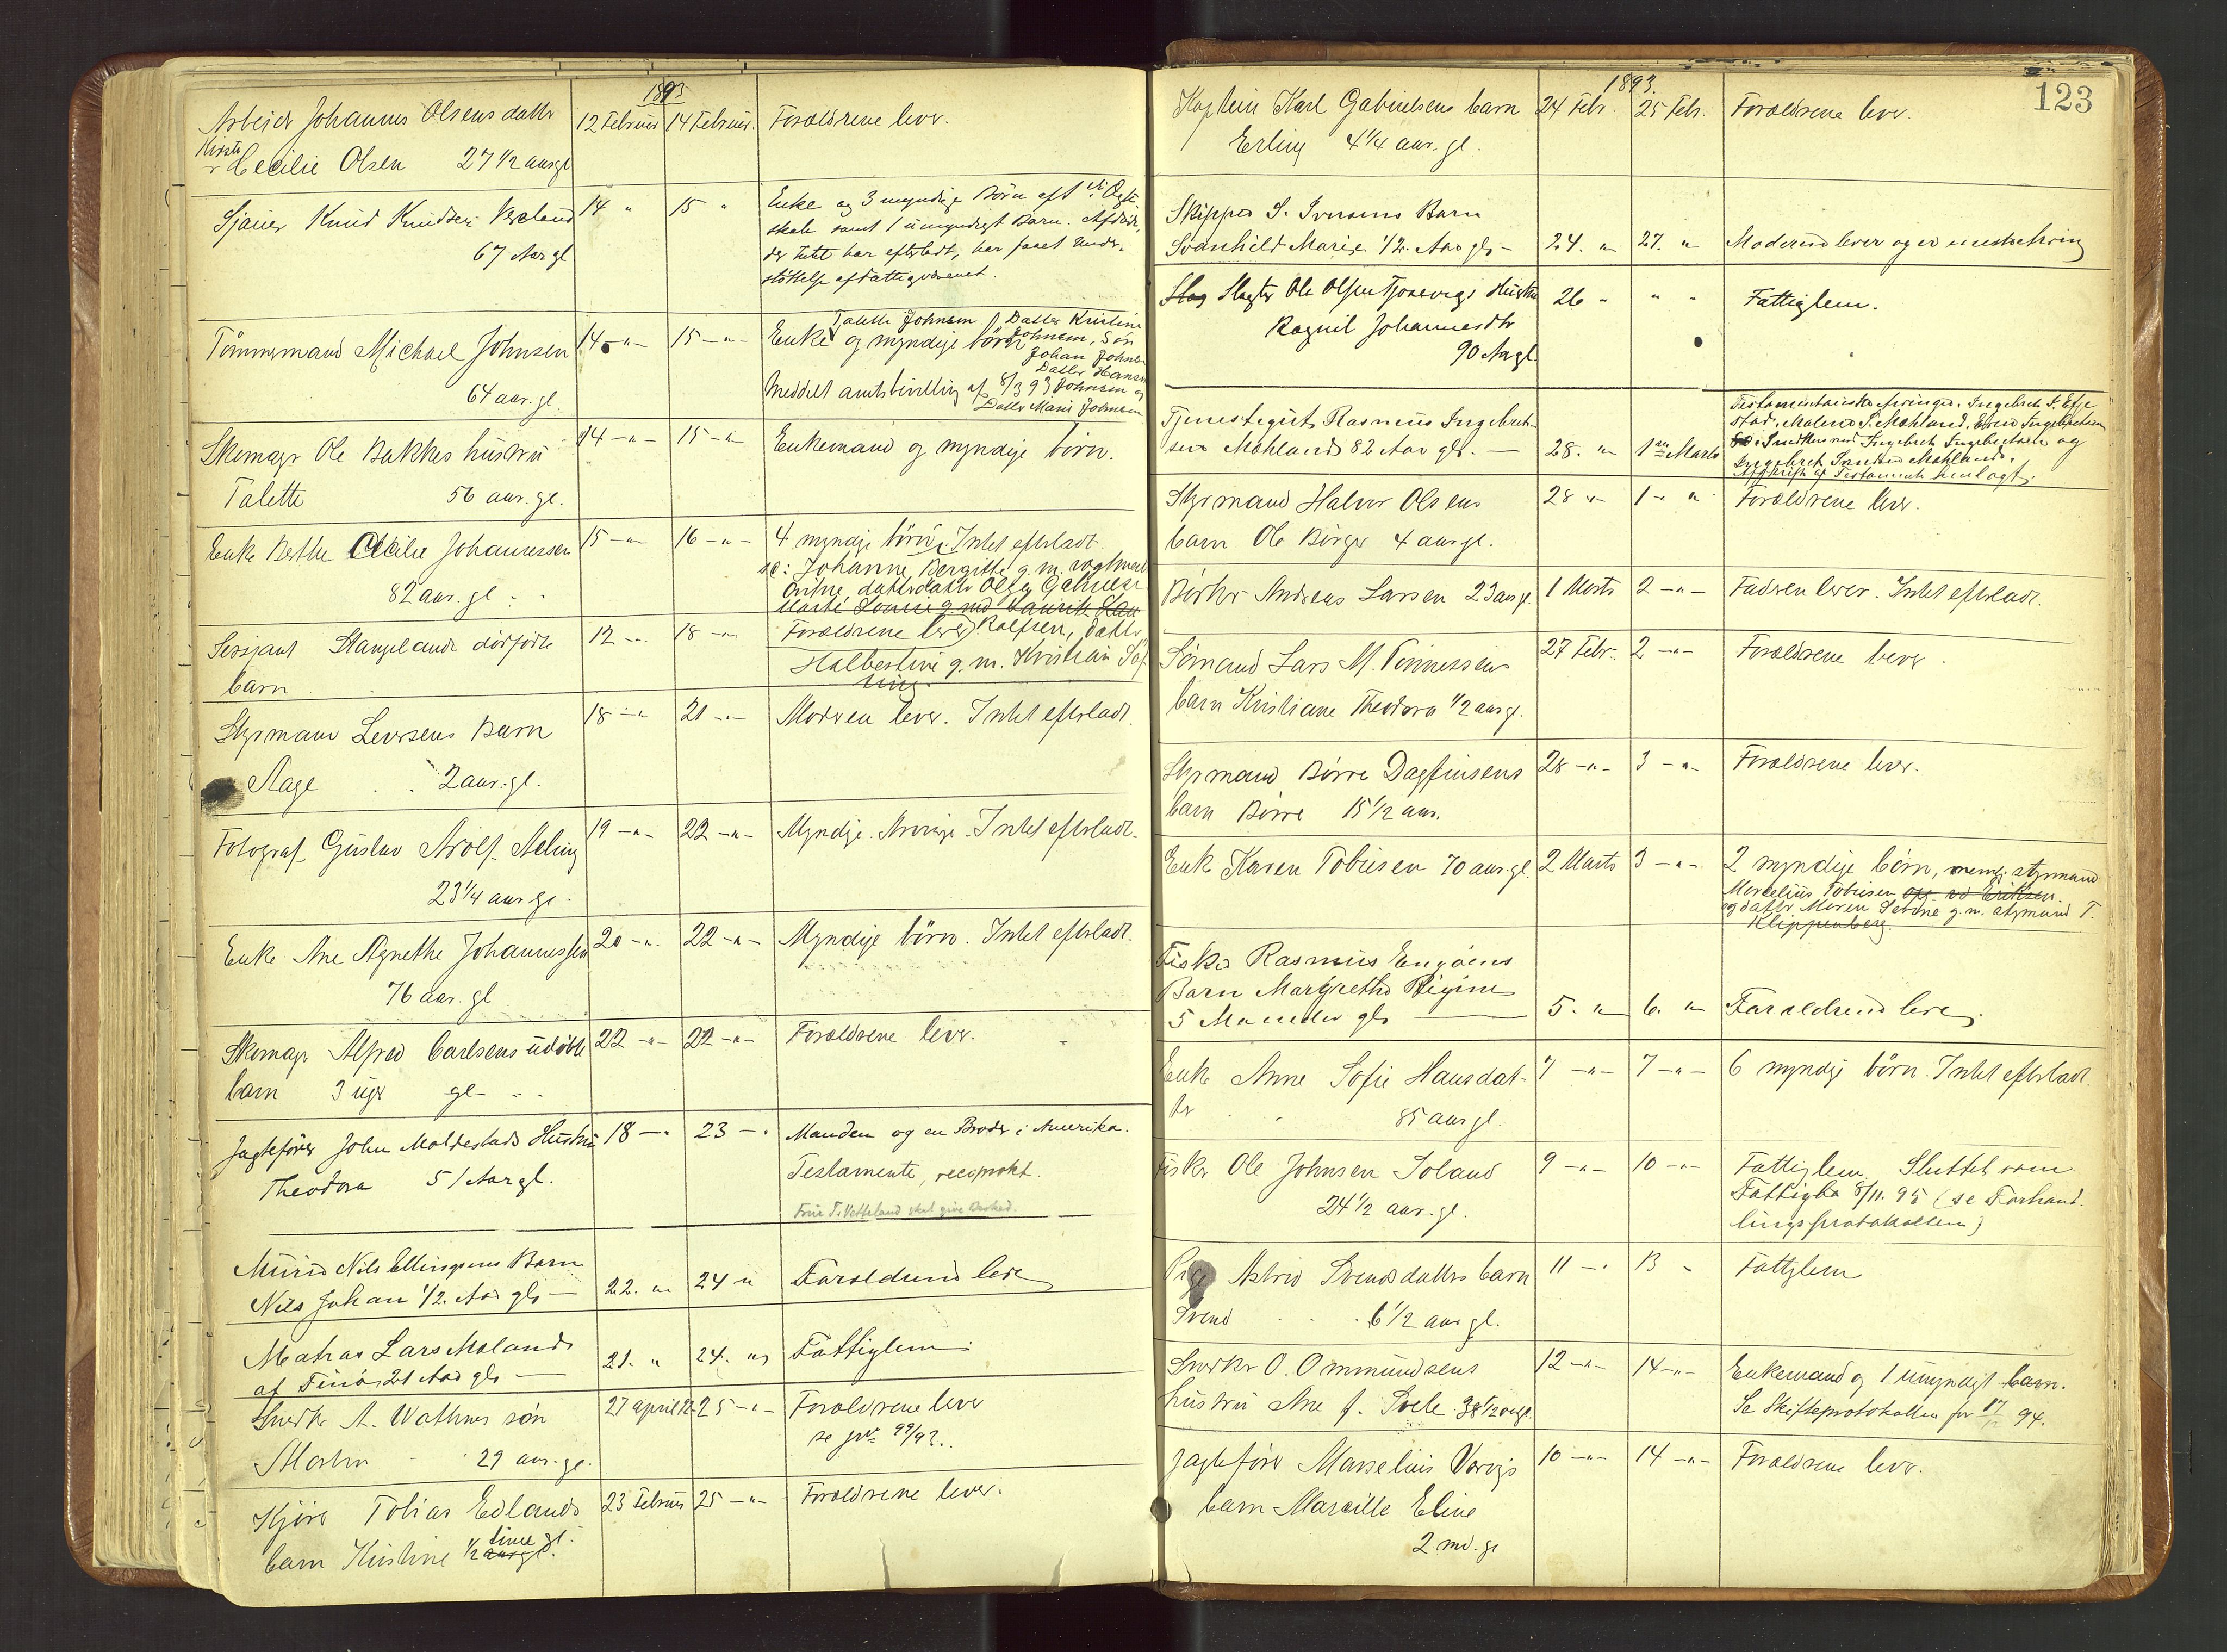 1893
Arbeider Johannes Olsens datter 12 Februar 14 Februar. Forældrene lever.
Cecilie Olsen 27 1/2 aar gl
Sjauer Knud Knudsen 14 " 15 " Enke og 3 myndige Børn af Ægte-
67 Aar gl
skab samt 1 umyndigt Barn. Afdøde,
der Intet har efterladt, har faaet Under-
støttelse af Fattigvæsenet.
Talette Johnsen Datter Kristine
Tømmermand Michael Johnsen 14 -"- 15 -"- Enke og myndige børn Johnsen, Søn
Johan Johnsen
Datter Hansine
64 aar. gl.
Meddelt amtsbevilling af 8/3 93 Johnsen og
Datter Marie Johnsen
Skomager Ole Bakkes hustru 14 -"- 15 -"- Enkemand og myndige børn.
Talette 56 aar. gl.
Enke Berthe Cecilie Johannessen 15 -"- 16 -"- 4 myndige børn. Intet efterladt.
82 aar. gl
Johanne Bergitte g. m.
Sersjant Stangelands dødfødte 12 -"- 18 -"- Forældrene lever
barn
Halbertine g. m. Kristian
Styrmand Leversens Barn 18 -"- 21 -"- Moderen lever. Intet efterladt.
Aage 2 aar. gl.
Fotograf Gustav Adolf Aeling 19 -"- 22 -"- Myndige Arvinge. Intet efterladt.
23 1/4 aar gl.
Enke Ane Agnethe Johannessen 20 -"- 22 -"- Myndige børn. Intet efterladt.
76 aar. gl.
Skomager Alfred Carlsens udøbte 22 -"- 22 -"- Forældrene lever.
barn 3 uger gl
Jagtefører John Moldestads Hustru 18 -"- 23 -"- Manden og en Broder i Amerika.
Theodora 51 Aar gl.
Testamente, reciprokt.
Frue T. Vetteland skal give Besked.
Murer Nils Ellingsens Barn
Nils Johan 1/2 Aar gl. 22. " 24 " Forældrene lever
Matros Lars Molands
af Finö 21 Aar gl 21. " 24. " Fattiglem.
Snedker A. Wathnes søn 27 april 92 25 -"- Forældrene lever
Martin 29 aar. gl.
se jvr 99/92.
Kjører Tobias Edlands 23 Februar 25 -"- Forældrene lever.
barn Kristine 1/2 time gl.
123
1893.
Kaptein Karl Gabrielsens barn 24 Febr. 25 Febr. Forældrene lever.
Erling 4 1/4 aar. gl.
Skipper S. Iversens Barn
Svanhild Marie 1/2 Aar gl. 24. " 27. " Moderen lever og er enestearving
Slagter Ole Olsen Tjosevigs Hustru 26 " " " Fattiglem.
Ragnil Johannesdtr
90 Aar gl.
Tjenestegut Rasmus Ingebret-
sen Mohland 82 Aar gl. 28. " 1ste Marts
Afskrift af Testamente henlagt.
Styrmand Halvor Olsens 28 " 1 -"- Forældrene lever.
barn Ole Børger 4 aar gl.
Bødker Andreas Larsen 23 aar gl. 1 Marts 2 -"- Faderen lever. Intet efterladt.
Sømand Lars M. Tønnessens 27 Febr. 2 -"- Forældrene lever.
barn Kristiane Theodora 1/2 aar gl.
Styrmand Børre Dagfinsens 28 -"- 3 -"- Forældrene lever.
barn Børre 15 1/2 aar.
Enke Karen Tobiesen 70 aar. gl. 2 Marts 3 -"- 2 myndige børn, nemlig styrmand
Marcelius Tobiesen
og datter Maren Serine g. m. styrmand T.
Klippenberg.
Fisker Rasmus Engøens
Barn Margrethe Regine
5 Maaneder gl. 5. " 6. " Forældrene lever
Enke Anne Sofie Hansdat- 7 -"- 7 -"- 6 myndige børn. Intet efterladt.
ter 85 aar gl.
Fisker Ole Johnsen Soland 9 -"- 10 -"- Fattiglem. Sluttet som
24 1/2 aar. gl.
Fattigbo 8/11. 95 (se Forhand-
lingsprotokollen)
Pige Astrid Svendsdatters barn 11 -"- 13 " Fattiglem
Svend 6 1/2 aar gl.
Snedker O. Ommundsens 12 -"- 14 -"- Enkemand og 1 umyndigt barn.
hustru Ane f. Svele 38 1/2 aar gl.
Se Skifteprotokollen for 17/12 94.
Jagtefører Marselius Vorviks 10 -"- 14 -"- Forældrene lever.
barn Marsille Eline
2 md. gl